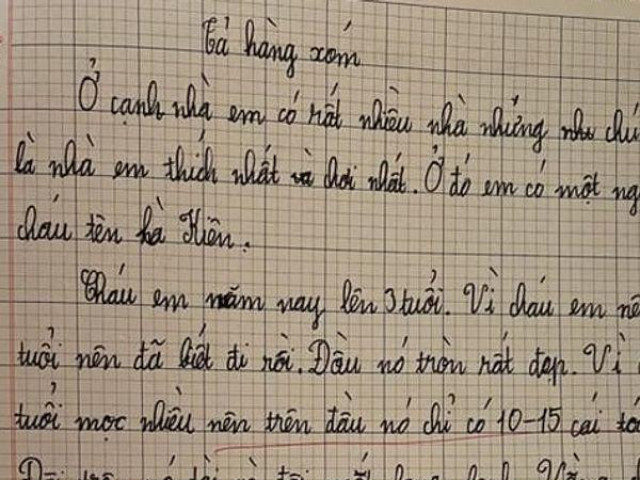 Tả hàng xóm
Ở cạnh nhà em có rất nhiều nhà nhưng như chú
là nhà em thích nhất và chơi nhất. Ở đó em có một ng
cháu tên là Kiên.
Cháu em năm nay lên 3 tuổi. Vì cháu em nê
tuổi nên đã biết đi rồi. Đầu nó tròn rất đẹp. Vì
tuổi mọc nhiều nên trên đầu nó chỉ có 10-15 cái tó